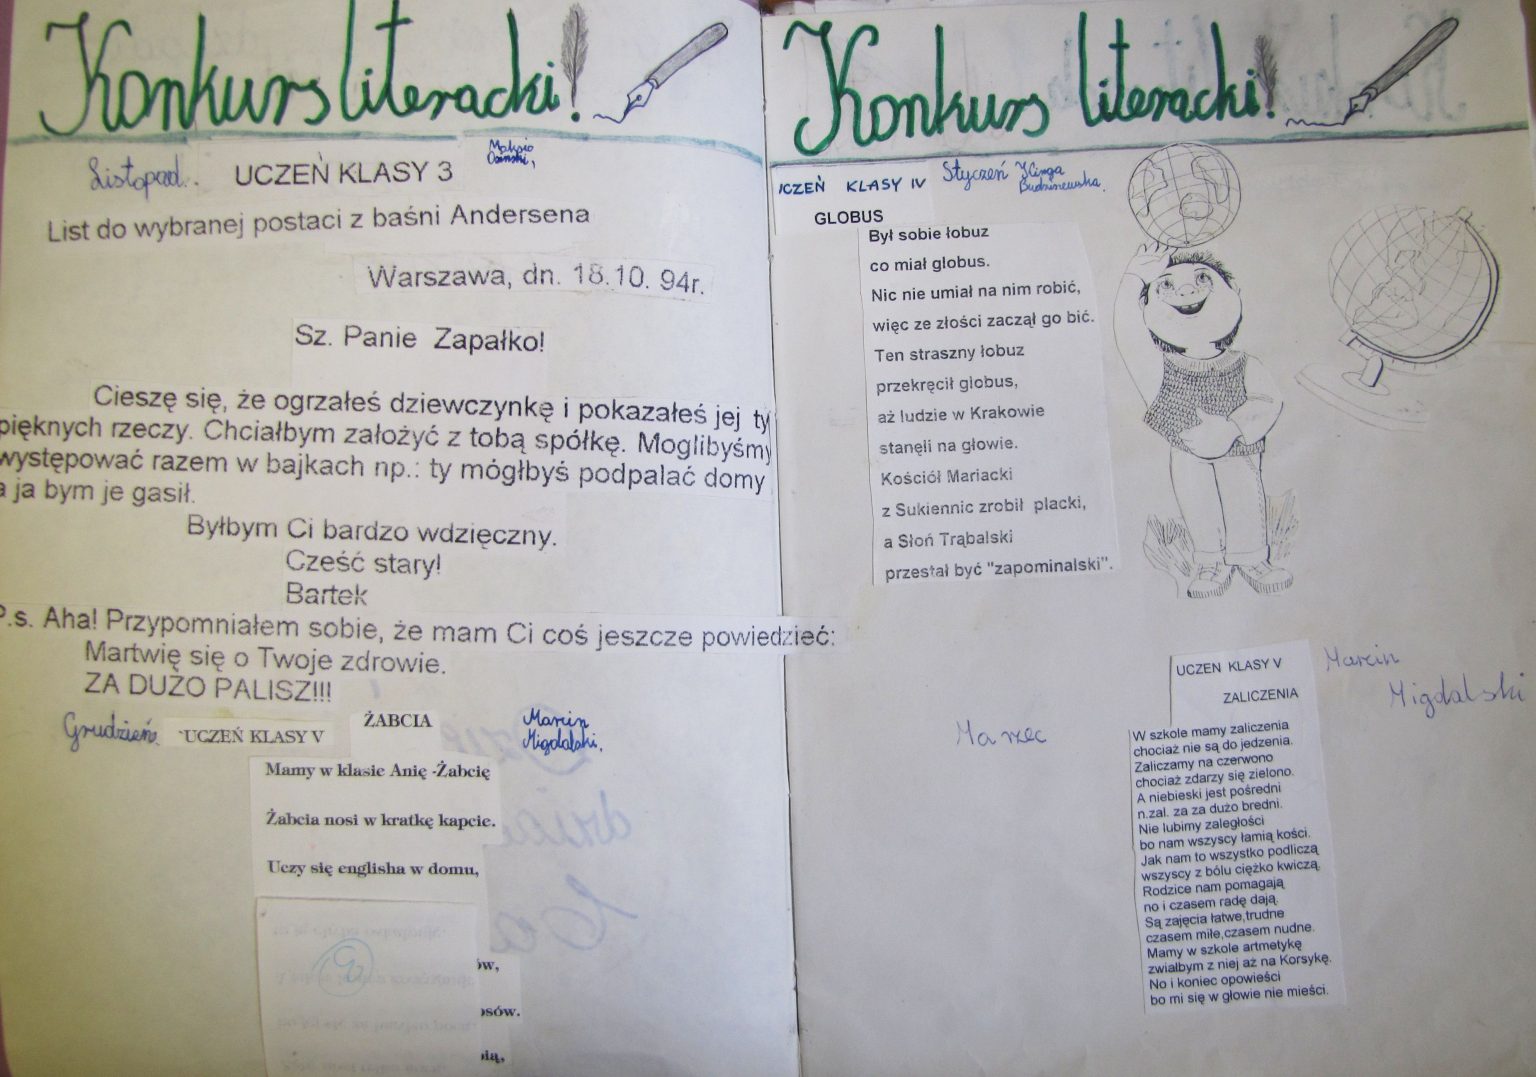 Konkurs literacki!
Listopad. UCZEŃ KLASY 3
List do wybranej postaci z baśni Andersena
Warszawa, dn. 18.10. 94r.
Sz. Panie Zapałko!
Cieszę się, że ogrzałeś dziewczynkę i pokazałeś jej ty
pięknych rzeczy. Chciałbym założyć z tobą spółkę. Moglibyśmy
występować razem w bajkach np.: ty mógłbyś podpalać domy
a ja bym je gasił.
Byłbym Ci bardzo wdzięczny.
Cześć stary!
Bartek
P.s. Aha! Przypomniałem sobie, że mam Ci coś jeszcze powiedzieć:
Martwię się o Twoje zdrowie.
ZA DUŻO PALISZ!!!
Grudzień. UCZEŃ KLASY V ŻABCIA Marcin
Migdalski.
Mamy w klasie Anię -Żabcię
Żabcia nosi w kratkę kapcie.
Uczy się englisha w domu,
Konkurs literacki!
UCZEŃ KLASY IV Styczeń Kinga
Budziszewska.
GLOBUS
Był sobie łobuz
co miał globus.
Nic nie umiał na nim robić,
więc ze złości zaczął go bić.
Ten straszny łobuz
przekręcił globus,
aż ludzie w Krakowie
stanęli na głowie.
Kościół Mariacki
z Sukiennic zrobił placki,
a Słoń Trąbalski
przestał być "zapominalski".
Marzec
UCZEŃ KLASY V Marcin
Migdalski
ZALICZENIA
W szkole mamy zaliczenia
chociaż nie są do jedzenia.
Zaliczamy na czerwono
chociaż zdarzy się zielono.
A niebieski jest pośredni
n.zal. za za dużo bredni.
Nie lubimy zaległości
bo nam wszyscy łamią kości.
Jak nam to wszystko podliczą
wszyscy z bólu ciężko kwiczą.
Rodzice nam pomagają
no i czasem radę dają.
Są zajęcia łatwe,trudne
czasem miłe,czasem nudne.
Mamy w szkole artmetykę
zwiałbym z niej aż na Korsykę.
No i koniec opowieści
bo mi się w głowie nie mieści.